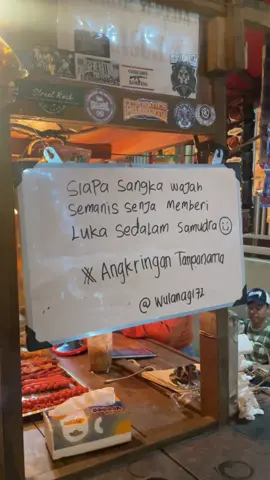 SIAPA SANGKA WAJAH
SEMANIS SENJA MEMBERI
LUKA SEDALAM SAMUDRA ☺
ANGKRINGAN TANPANAMA
@WULANAGI72